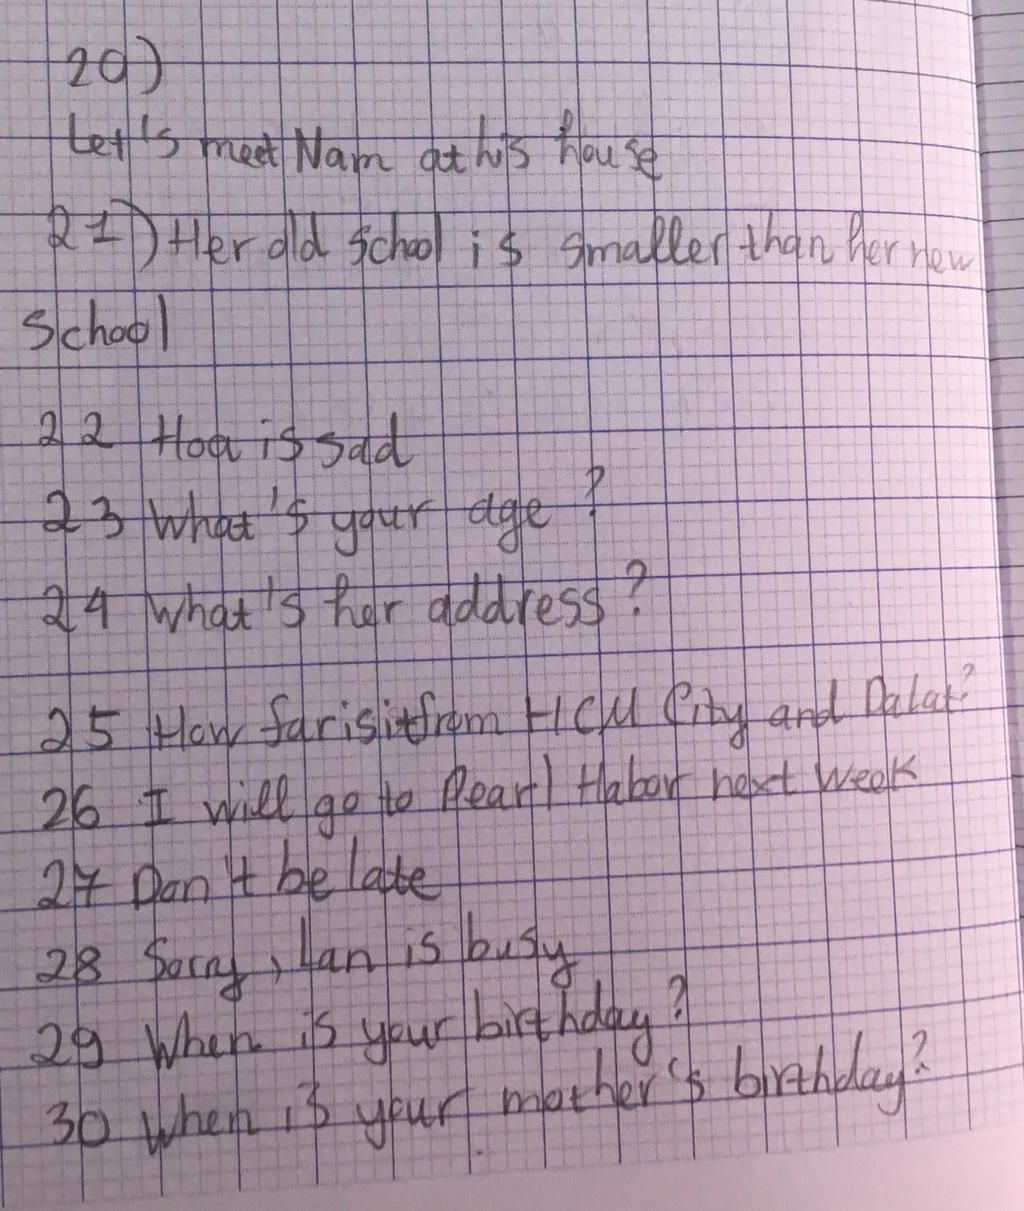 20)
Let's meet Nam at his house
21) Her old school is smaller than her new
school
22 Hoa is sad
23 What's your age ?
24 What's her address ?
25 How far is it from HCM City and Dalat?
26 I will go to Pearl Habor next week
27 Don't be late
28 Sorry, lan is busy
29 When is your birthday ?
30 When is your mother's birthday?